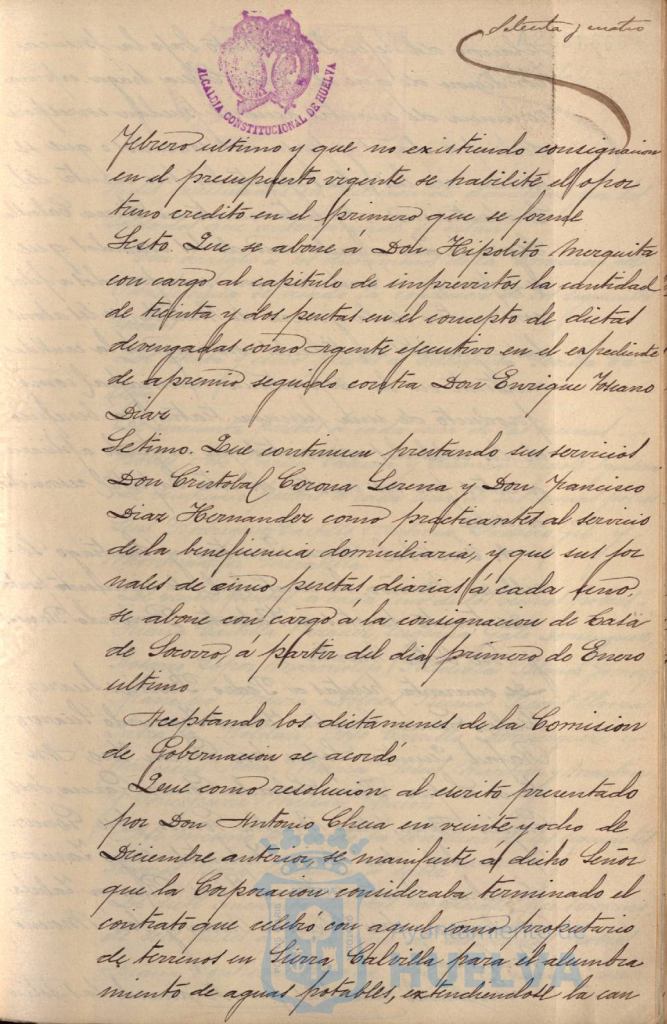 Setenta y cuatro
ALCALDIA CONSTITUCIONAL DE HUELVA
Febrero ultimo y que no existiendo consignacion
en el presupuesto vigente se habilite el opor
tuno credito en el primero que se forme
Sesto. Que se abone á Don Hipolito Merquita
con cargo al capitulo de imprevistos la cantidad
de treinta y dos pesetas en el concepto de dietas
devengadas como Agente ejecutivo en el expediente
de apremio seguido contra Don Enrique Toscano
Diaz
Setimo. Que continuen prestando sus servicios
Don Cristobal Corona Lerena y Don Francisco
Diaz Hernandez como practicantes al servicio
de la beneficencia domiciliaria, y que sus jor
nales de cinco pesetas diarias á cada uno,
se abone con cargo á la consignacion de Casa
de Socorro, á partir del dia primero de Enero
ultimo
Aceptando los dictamenes de la Comision
de Gobernacion se acordó
Que como resolucion al escrito presentado
por Don Antonio Checa en veinte y ocho de
Diciembre anterior, se manifieste á dicho Señor
que la Corporacion consideraba terminado el
contrato que celebró con aquel como propietario
de terrenos en Sierra Calvilla para el alumbra
miento de aguas potables, extendiendose la can
HUELVA